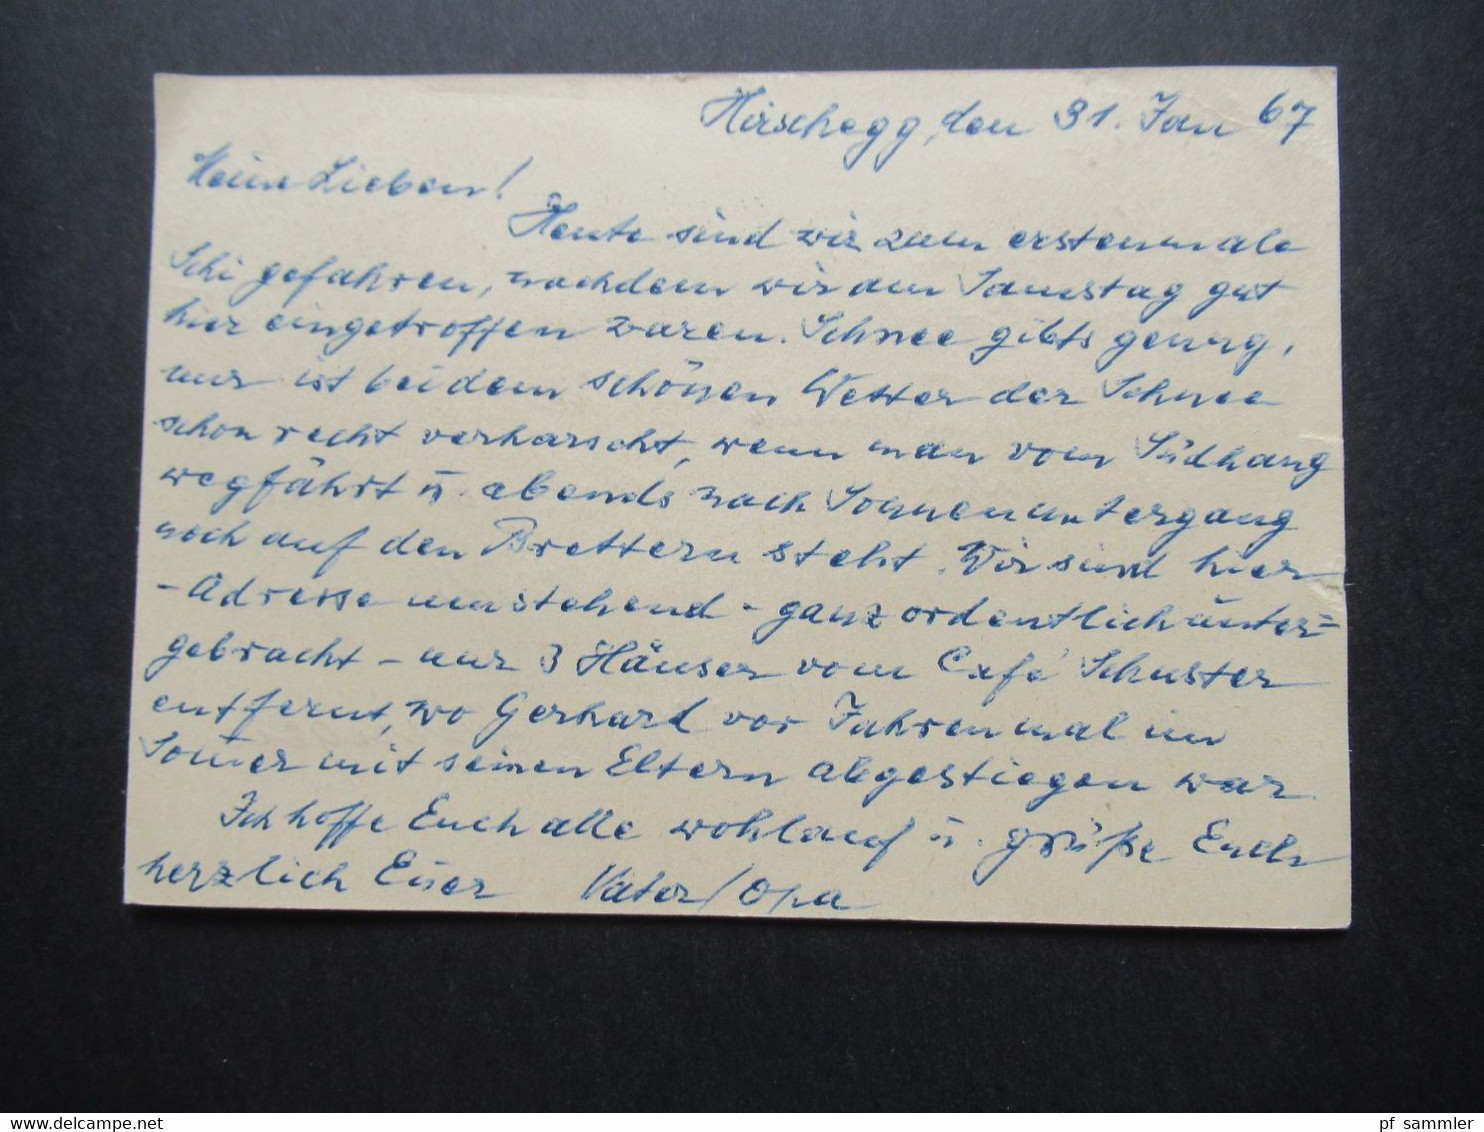 Hirschegg, den 31. Jan 67
Meine Lieben!
Heute sind wir zum erstenmale
Schi gefahren, nachdem wir am Samstag gut
hier eingetroffen waren. Schnee gibts genug,
nur ist bei dem schönen Wetter der Schnee
schon recht verharscht, wenn man vom Südhang
wegfährt u. abends nach Sonnenuntergang
noch auf den Brettern steht. Wir sind hier
- Adresse umstehend - ganz ordentlich unter=
gebracht - nur 3 Häuser vom Café Schuster
entfernt, wo Gerhard vor Jahren mal im
Som̅er mit seinen Eltern abgestiegen war.
Ich hoffe Euch alle wohlauf u. grüße Euch
herzlich Euer Vater/Opa
pf sammler
www.delcampe.net